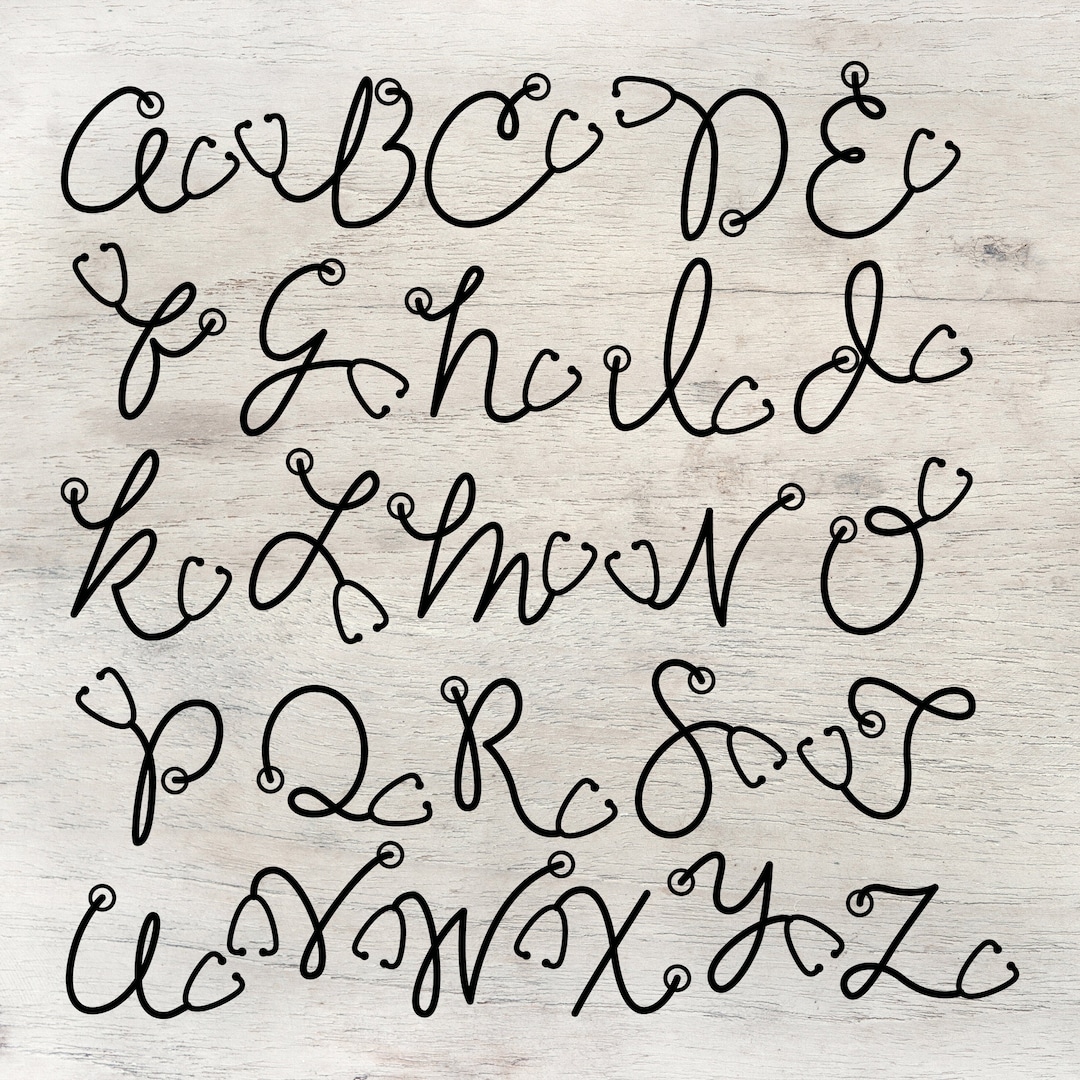 a B C D E
f G h I J
k L m N O
P Q R S T
U V W X Y Z